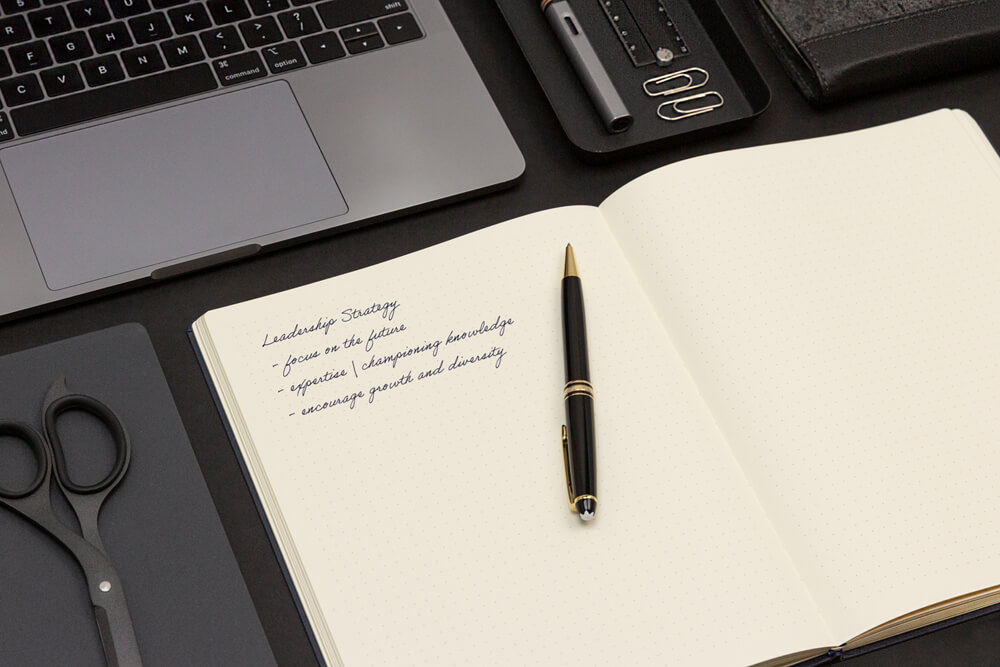 T Y U
shift
F G H J K L : ; " '
C V B N M < , > . ? /
command
⌘
command
⌥
option
Leadership Strategy
- focus on the future
- expertise | championing knowledge
- encourage growth and diversity